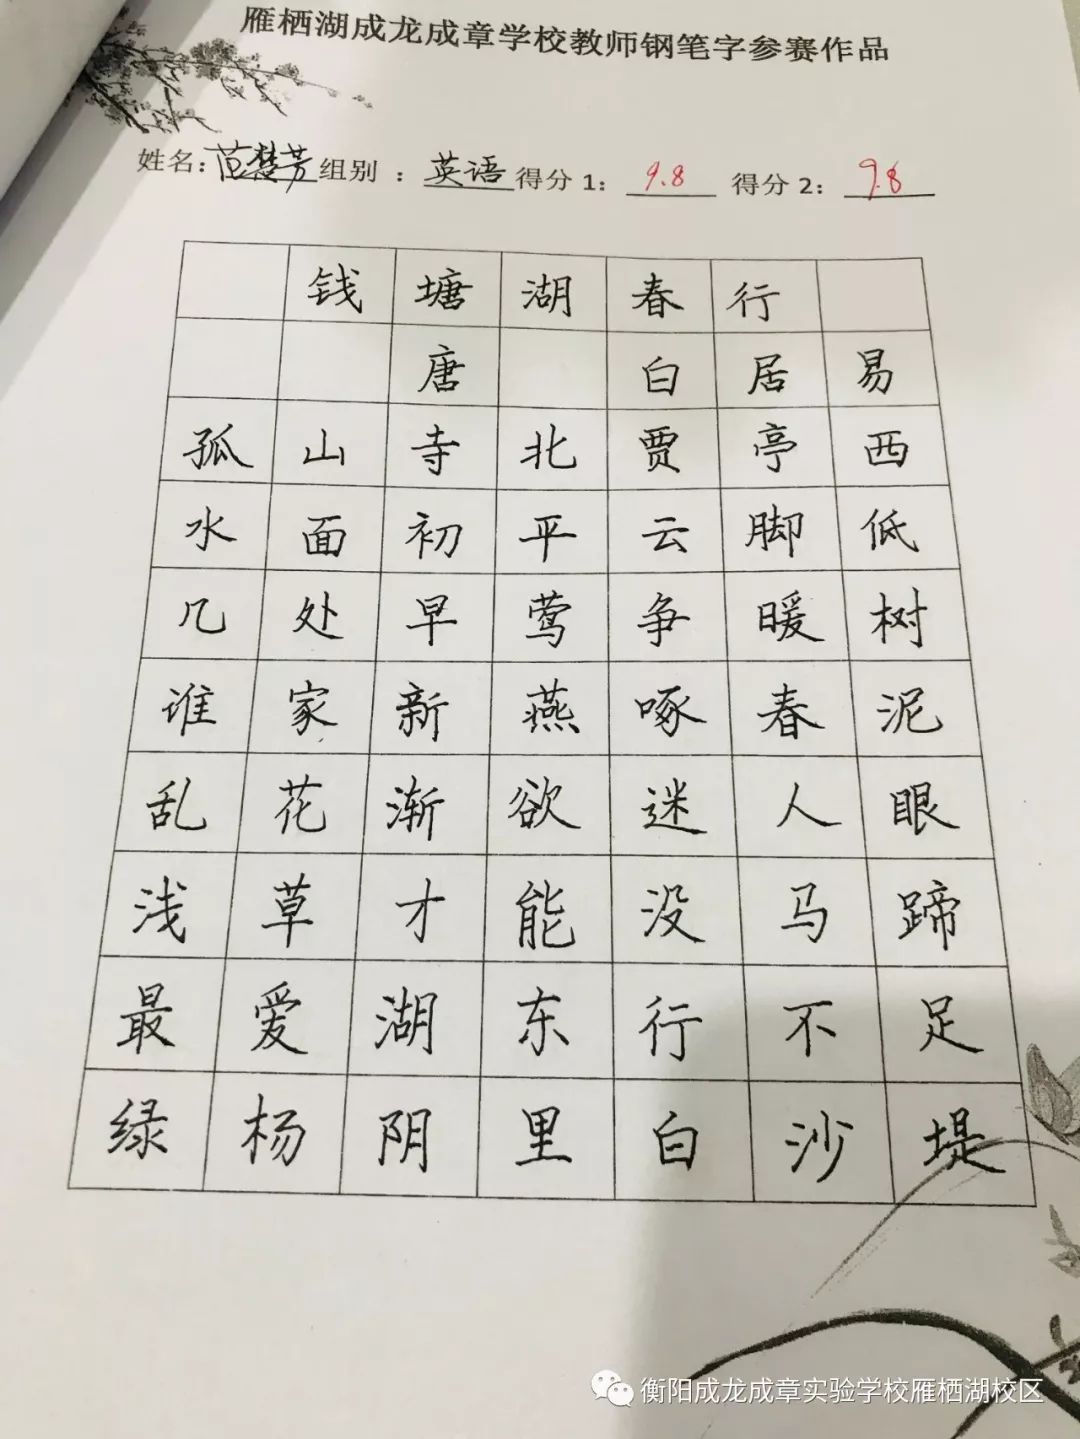 雁栖湖成龙成章学校教师钢笔字参赛作品
姓名：范楚芳组别 ：英语得分 1： 9.8 得分 2： 9.8
钱塘湖春行
唐 白居易
孤山寺北贾亭西
水面初平云脚低
几处早莺争暖树
谁家新燕啄春泥
乱花渐欲迷人眼
浅草才能没马蹄
最爱湖东行不足
绿杨阴里白沙堤
衡阳成龙成章实验学校雁栖湖校区